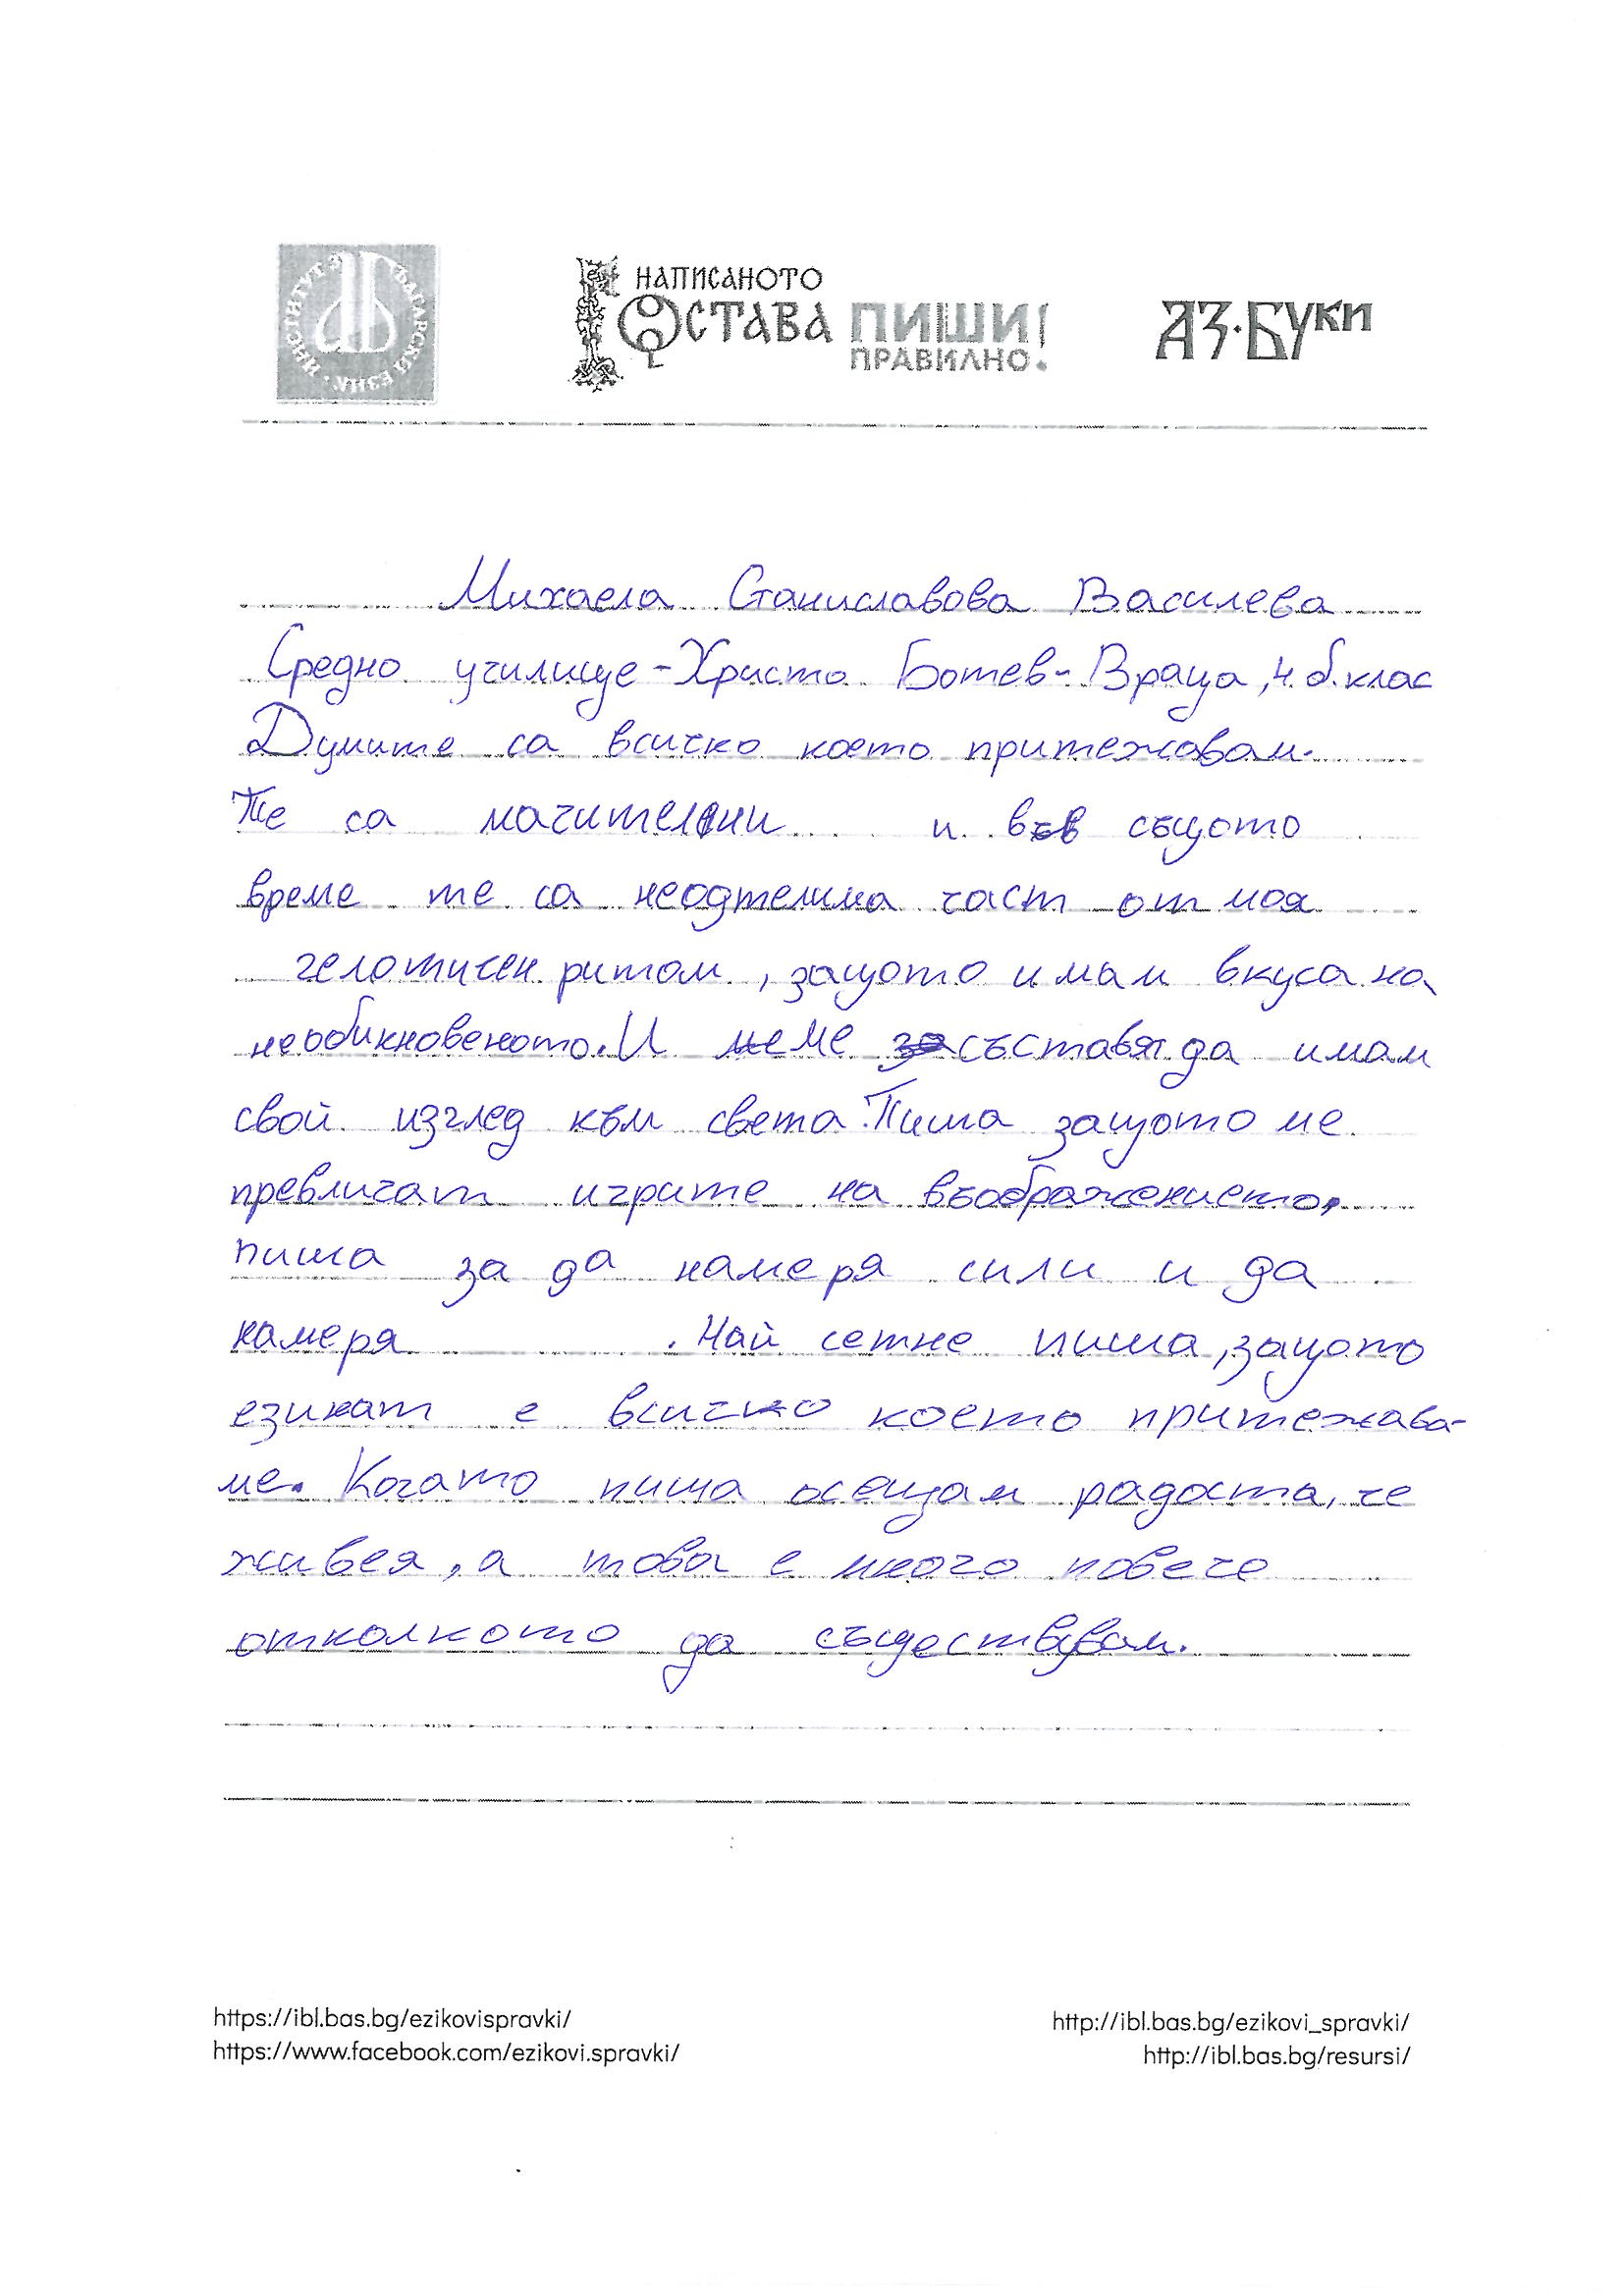 ИНСТИТУТ ЗА БЪЛГАРСКИ ЕЗИК
НАПИСАНОТО
ОСТАВА ПИШИ!
ПРАВИЛНО!
АЗ·БУКИ
Михаела Станиславова Василева
Средно училище-Христо Ботев-Враца, 4. б. клас
Думите са всичко което притежавам.
Те са мачителни и във същото
време те са неодтелима част от моя
челотичен ритом, защото имам вкуса на
необикновеното. И ме съставят да имам
свой изглед към света. Пиша защото ме
превличат игрите на въображението,
пиша за да намеря сили и да
намеря . Най сетне пиша, защото
езикат е всичко което притежава-
ме. Когато пиша осещам радоста, че
живея, а това е много повече
отколкото да съществувам.
https://ibl.bas.bg/ezikovispravki/
https://www.facebook.com/ezikovi.spravki/
http://ibl.bas.bg/ezikovi_spravki/
http://ibl.bas.bg/resursi/